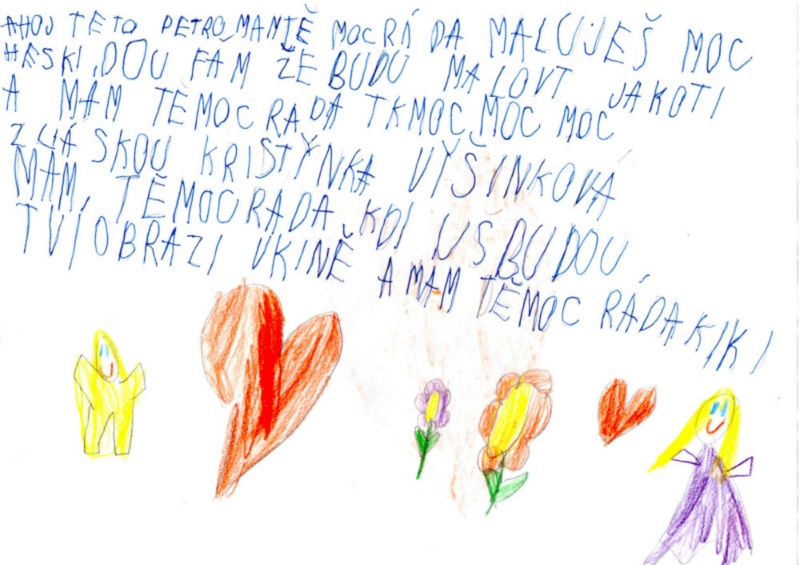 AHOJ TETO PETRO, MAMTĚ MOCRÁ DA MALUJEŠ MOC
HESKI, DOU FÁM ŽEBUDU MALOVT JAKOTI
A MÁM TĚMOC RADA TKMOC, MOC MOC
Z LÁSKOU KRISTÝNKA VÝŠINKOVÁ
MÁM, TĚMOC RADA, KDI USBUDOU,
TVJOBRAZI VKINĚ AMAM TĚMOC RÁDAKIKI